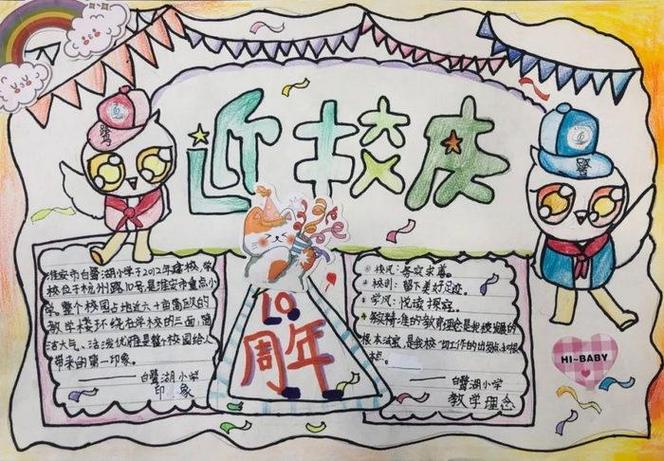 迎校庆
淮安市白鹭湖小学于2012年建校,学
校位于杭州路10号,是淮安市重点小
学。整个校园占地近六十亩
教学楼环绕在学校的三面,简
洁大气、活泼优雅是整个校园给人
带来的第一印象。
——白鹭湖小学
印象
10
周年
校风:每
校训:留下美好足迹。
学风:悦读 探究。
教精准的教育理念是我校发展的
根本
——白鹭湖小学
教学理念
HI-BABY